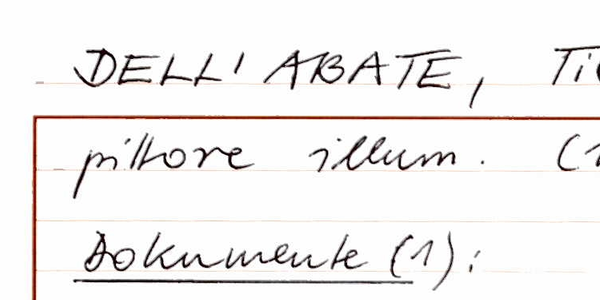 DELL' ABATE, Ti
pittore illum. (1
Dokumente (1):